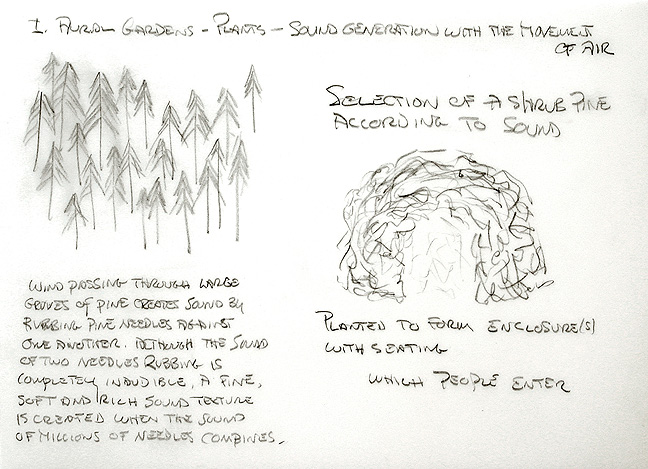 I. AURAL GARDENS - PLANTS - SOUND GENERATION WITH THE MOVEMENT
OF AIR
SELECTION OF A SHRUB PINE
ACCORDING TO SOUND
WIND PASSING THROUGH LARGE
GROVES OF PINE CREATES SOUND BY
RUBBING PINE NEEDLES AGAINST
ONE ANOTHER. ALTHOUGH THE SOUND
OF TWO NEEDLES RUBBING IS
COMPLETELY INAUDIBLE, A FINE,
SOFT AND RICH SOUND TEXTURE
IS CREATED WHEN THE SOUND
OF MILLIONS OF NEEDLES COMBINES.
PLANTED TO FORM ENCLOSURE(S)
WITH SEATING
WHICH PEOPLE ENTER